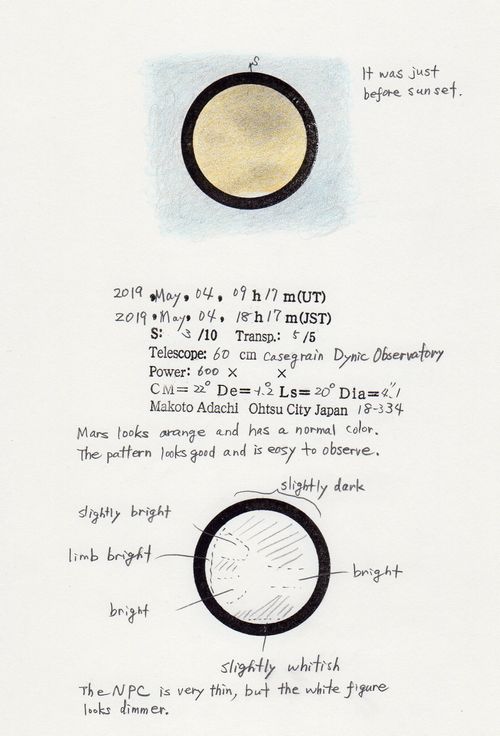 S
It was just
before sunset.
2019, May, 04, 09 h 17 m(UT)
2019, May, 04, 18 h 17 m(JST)
S: 3 /10 Transp.: 5 /5
Telescope: 60 cm Casegrain Dynic Observatory
Power: 600 × ×
CM= 22° De= +.2 Ls= 20° Dia= 4".1
Makoto Adachi Ohtsu City Japan 18-334
Mars looks orange and has a normal color.
The pattern looks good and is easy to observe.
slightly dark
slightly bright
limb bright
bright
bright
slightly whitish
The NPC is very thin, but the white figure
looks dimmer.